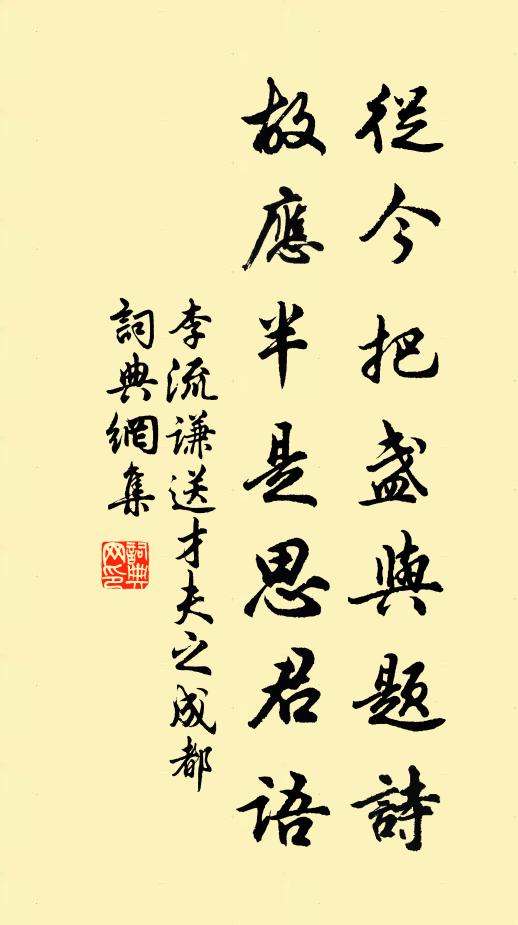 從今把盏與題詩
故應半是思君语
李流谦送才夫之成都
詞典網集
詞典网印